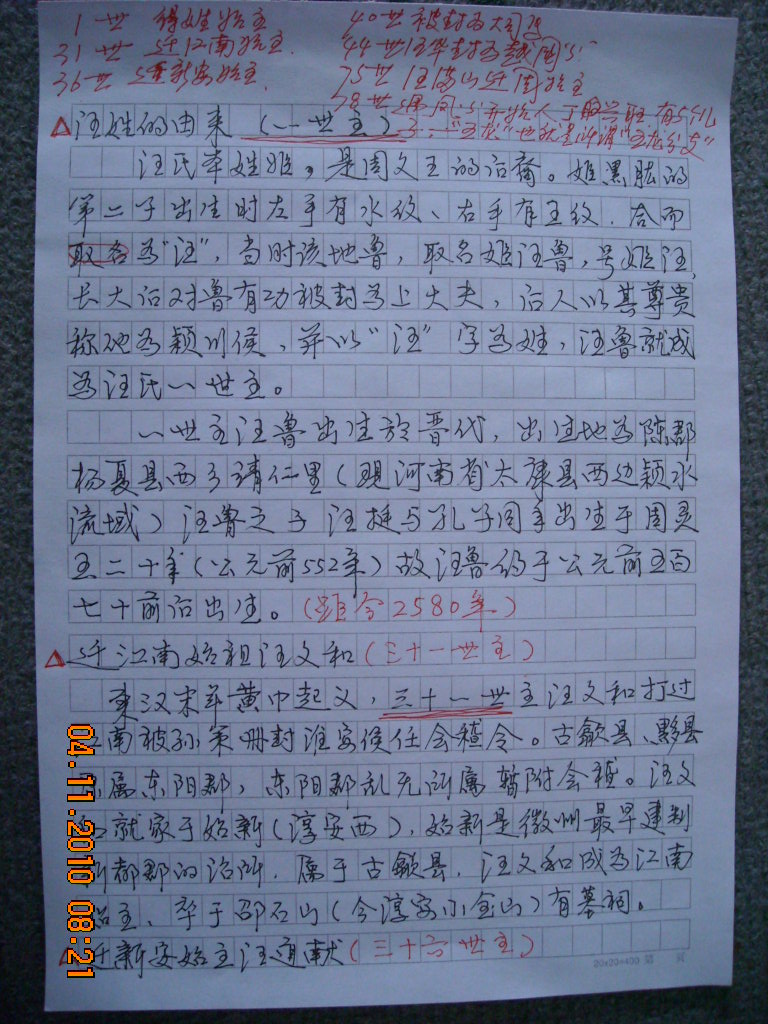 1世 得姓始主 40世被封为大司马
31世 迁江南始主. 44世汪华封为越国公
36世 迁新安始主. 75世 汪 山迁 始主
78世 公 开始人丁 兴旺 有5个儿
子 "五龙" 也就是所谓"五龙分支"
△汪姓的由来 (一世主)
汪氏本姓姬。是周文王的后裔。姬黑肱的
第二子出生时左手有水纹、右手有王纹.合而
取名为"汪",当时该地鲁,取名姬汪鲁,号姬汪,
长大后对鲁有功被封为上大夫,后人以其尊贵
称他为颖川侯、并以"汪"字为姓,汪鲁就成
为汪氏一世主。
一世主汪鲁出生於晋代,出生地为陈郡
杨夏县西乡靖仁里(现河南省太康县西边颖水
流域)汪鲁之子汪挺与孔子同年出生于周灵
王二十年(公元前552年)故汪鲁约于公元前五百
七十前后出生。(距今2580年)
△迁江南始祖汪文和(三十一世主)
东汉末年黄巾起义,三十一世主汪文和打过
江南被孙策册封淮安侯任会稽令。古歙县、黟县
属东阳郡,东阳郡乱无所属暂附会稽。汪文
和就家于始新(淳安西),始新是徽州最早建制
新都郡的治所.属于古歙县.汪文和成为江南
始主、卒于邵石山(今淳安小金山)有墓祠。
△迁新安始主汪道献(三十六世主)
20x20=400 第 页
04.11.2010 08:21